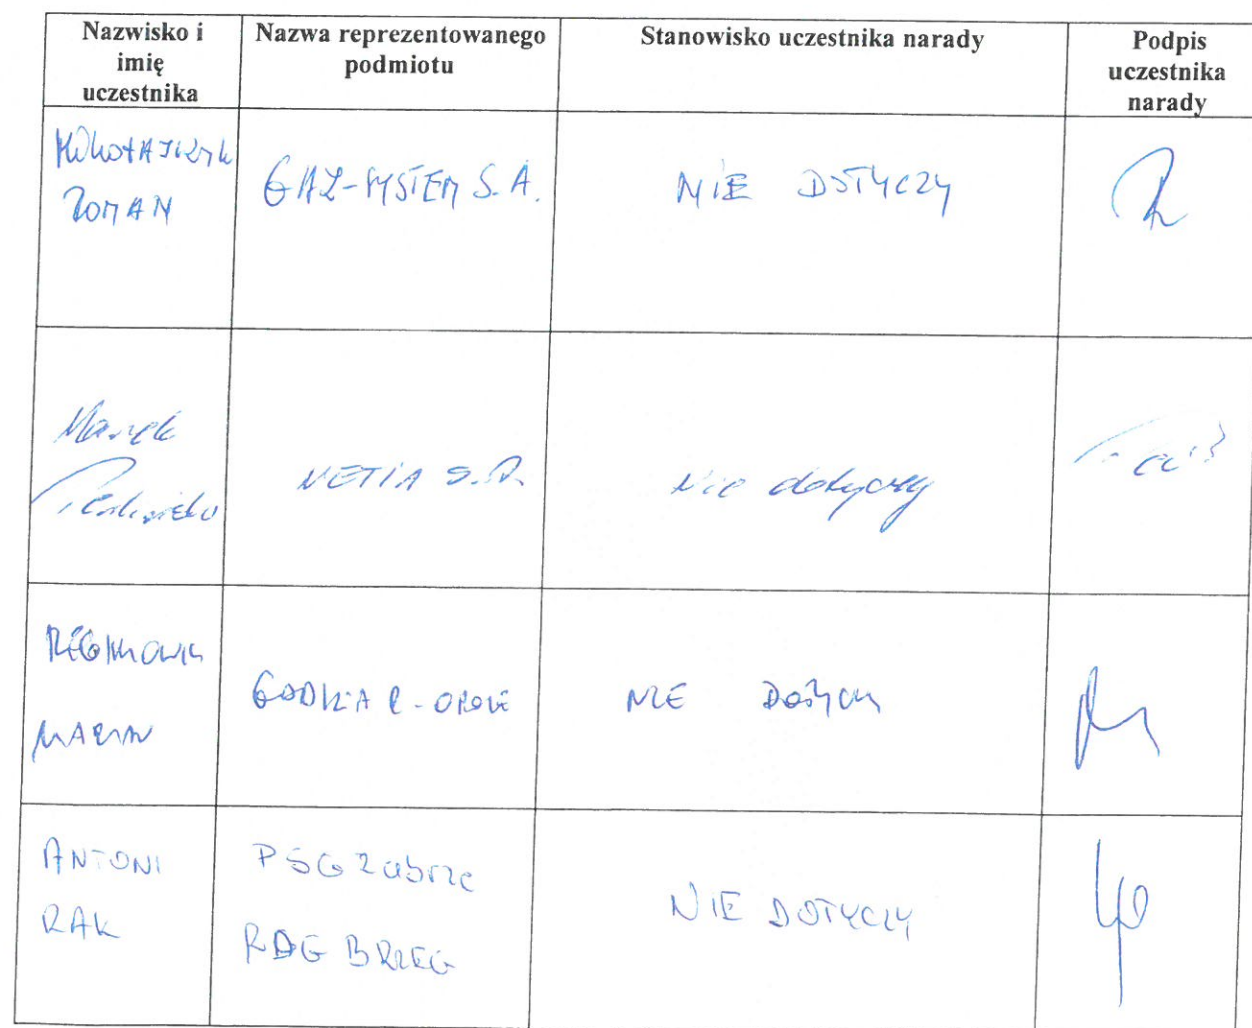 Nazwisko i
imię
uczestnika
Nazwa reprezentowanego
podmiotu
Stanowisko uczestnika narady
Podpis
uczestnika
narady
MIKOŁAJCZYK
ROMAN
GAZ-SYSTEM S.A.
NIE DOTYCZY
Marek
NETIA S.A.
Nie dotyczy
MARIAN
NIE DOTYCZY
ANTONI
RAK
PSG Zabrze
RDG BRZEG
NIE DOTYCZY